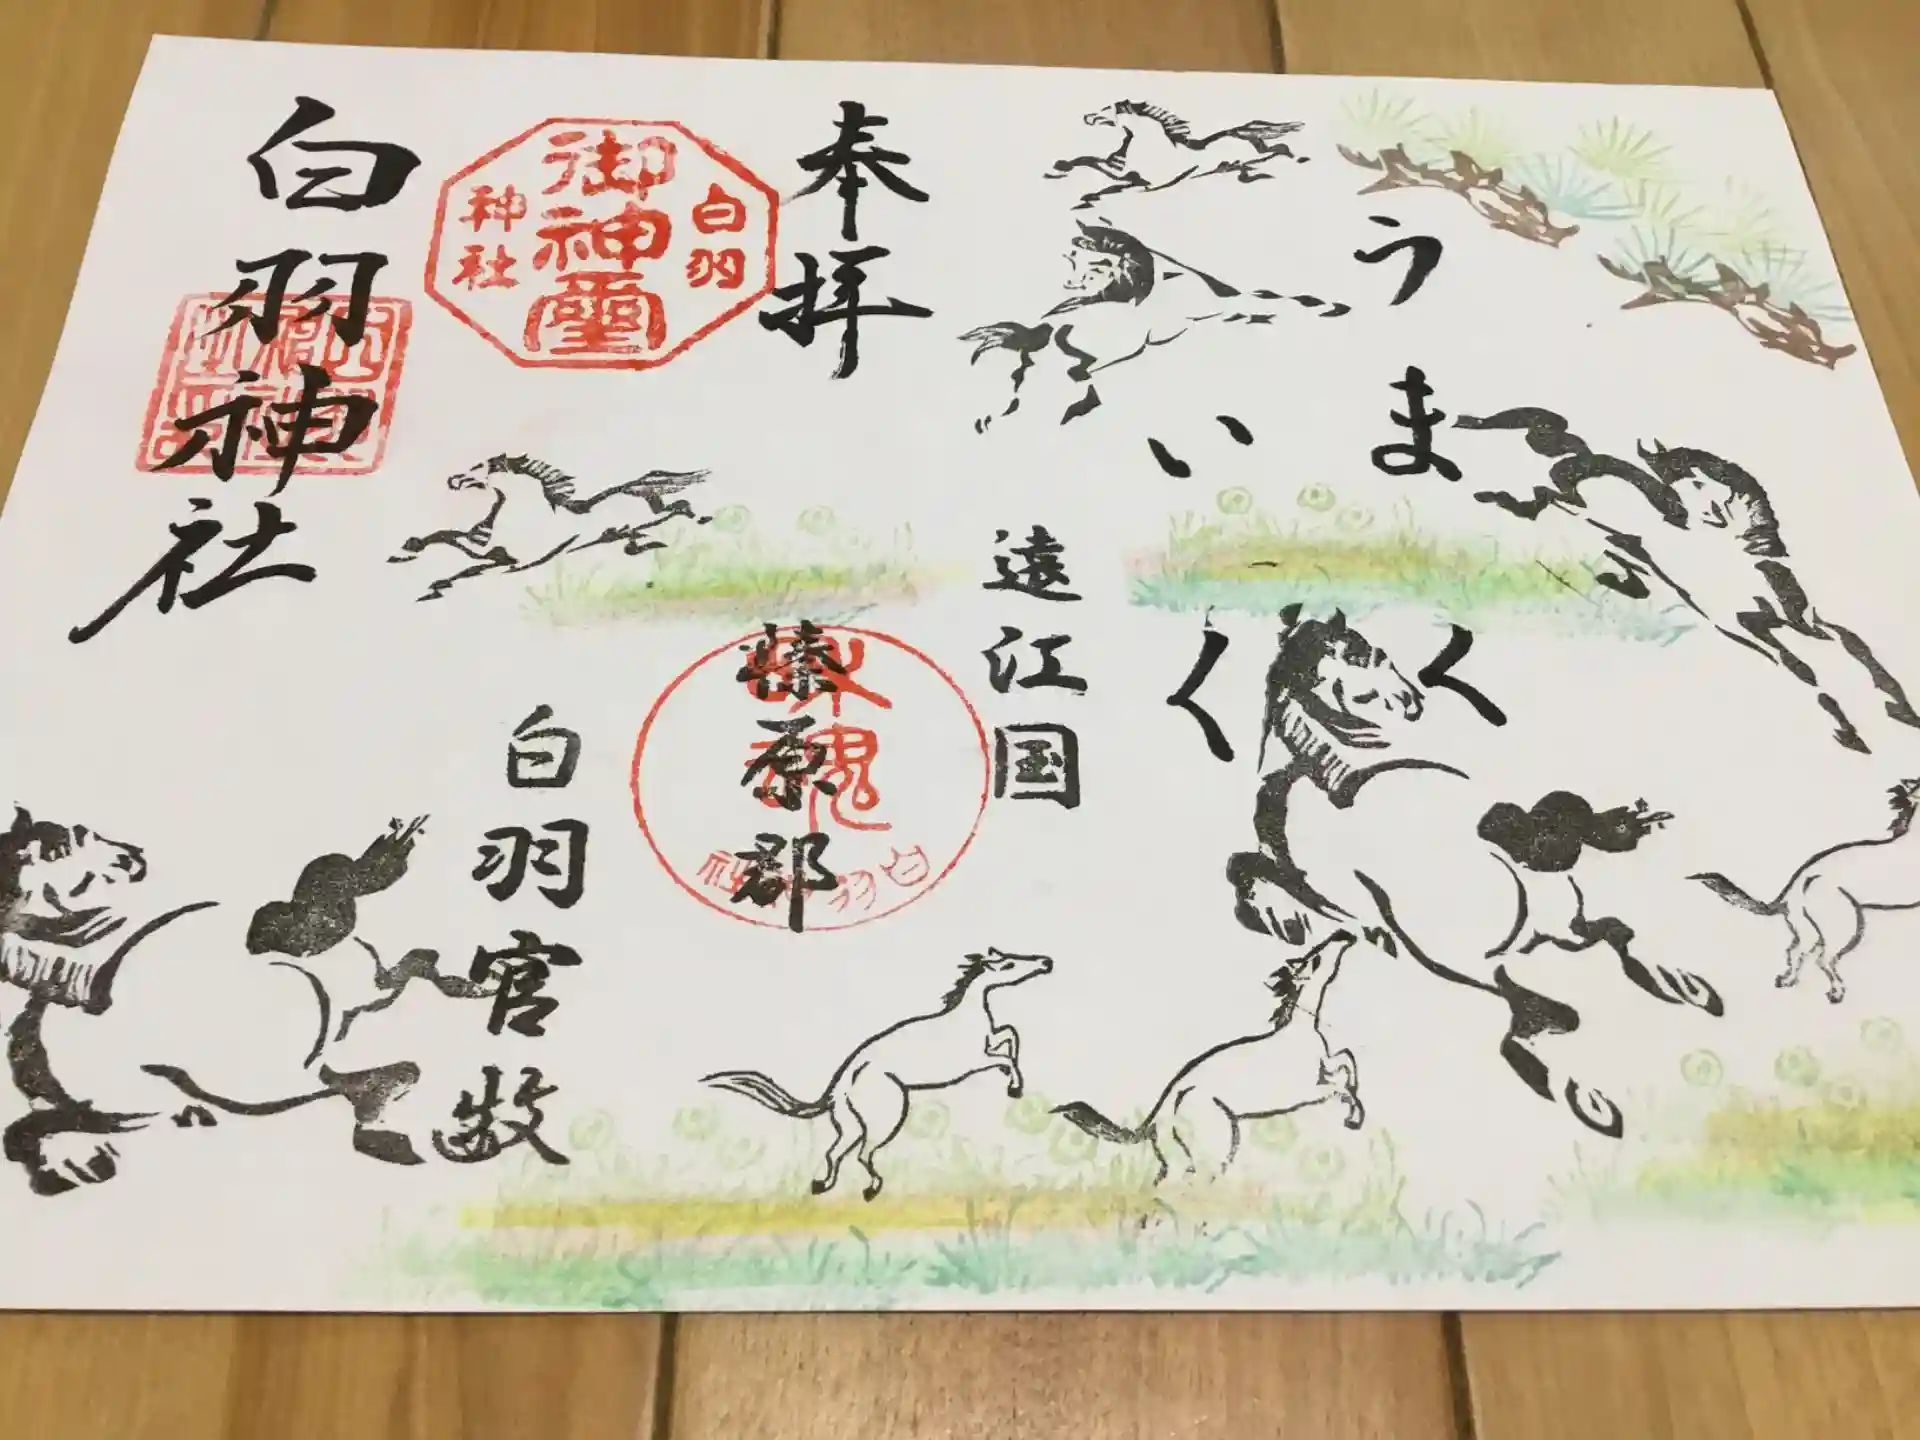 うまく
いく
奉拝
遠江国
榛原郡
白羽官牧
白羽
御神璽
神社
白羽神社
白羽神社